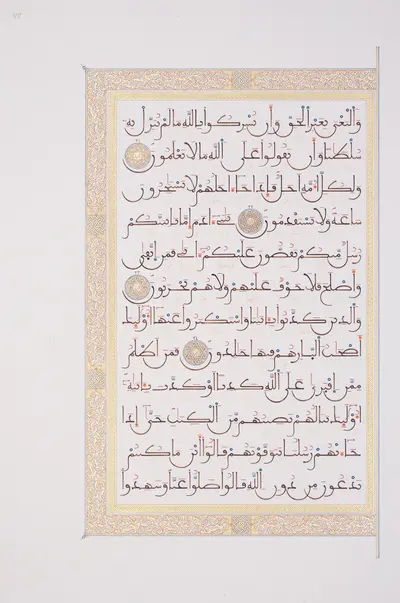 والبغي بغير الحق وأن تشركوا بالله ما لم ينزل به
سلطنا وأن تقولوا على الله ما لا تعلمون
ولكل أمة أجل فإذا جاء اجلهم لا يستخرون
ساعة ولا يستقدمون يبني ءادم إما ياتينكم
رسل منكم يقصون عليكم ءايتي فمن اتقى
وأصلح فلا خوف عليهم ولا هم يحزنون
والذين كذبوا بئايتنا واستكبروا عنها أولئك
أصحب النار هم فيها خلدون فمن أظلم
ممن افترى على الله كذبا أو كذب بئايته
أولئك ينالهم نصيبهم من الكتب حتى إذا
جاءتهم رسلنا يتوفونهم قالوا أين ما كنتم
تدعون من دون الله قالوا ضلوا عنا وشهدوا